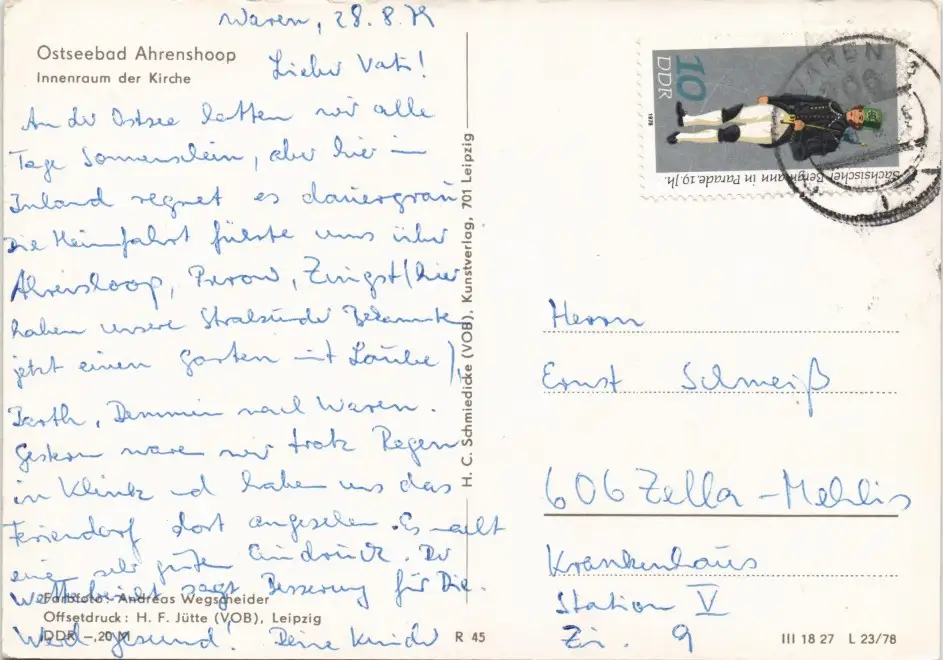 Waren, 28.8.79
Ostseebad Ahrenshoop
Innenraum der Kirche
Lieber Vati!
An der Ostsee hatten wir alle
Tage Sonnenschein, aber hier im
Inland regnet es dauergrau
Die Heimfahrt führte uns über
Ahrenshoop, Prerow, Zingst (hier
haben unsere Stralsunder Bekannten
jetzt einen Garten mit Laube),
Barth, Demmin nach Waren.
Gestern waren wir trotz Regen
in Klink und haben uns das
Feriendorf dort angesehen. Es macht
einen sehr guten Eindruck. Der
Wetterbericht sagt Besserung für Die.
Werd gesund! Deine Kinder
Farbfoto: Andreas Wegscheider
Offsetdruck: H. F. Jütte (VOB), Leipzig
DDR -,20 M
R 45
H. C. Schmiedicke (VOB), Kunstverlag, 701 Leipzig
10
DDR
1978
Sächsischer Bergmann in Parade, 19. Jh.
WAREN
Herrn
Ernst Schmeiß
606 Zella-Mehlis
Krankenhaus
Station V
Zi. 9
III 18 27 L 23/78